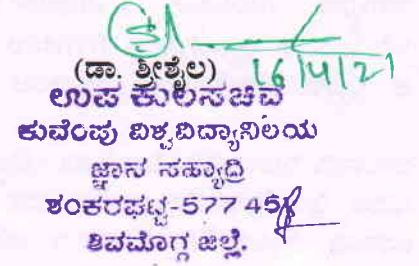 (ಡಾ. ಶ್ರೀಶೈಲ) 16/4/21
ಉಪ ಕುಲಸಚಿವ
ಕುವೆಂಪು ವಿಶ್ವವಿದ್ಯಾನಿಲಯ
ಜ್ಞಾನ ಸಹ್ಯಾದ್ರಿ
ಶಂಕರಘಟ್ಟ-577 451
ಶಿವಮೊಗ್ಗ ಜಿಲ್ಲೆ.